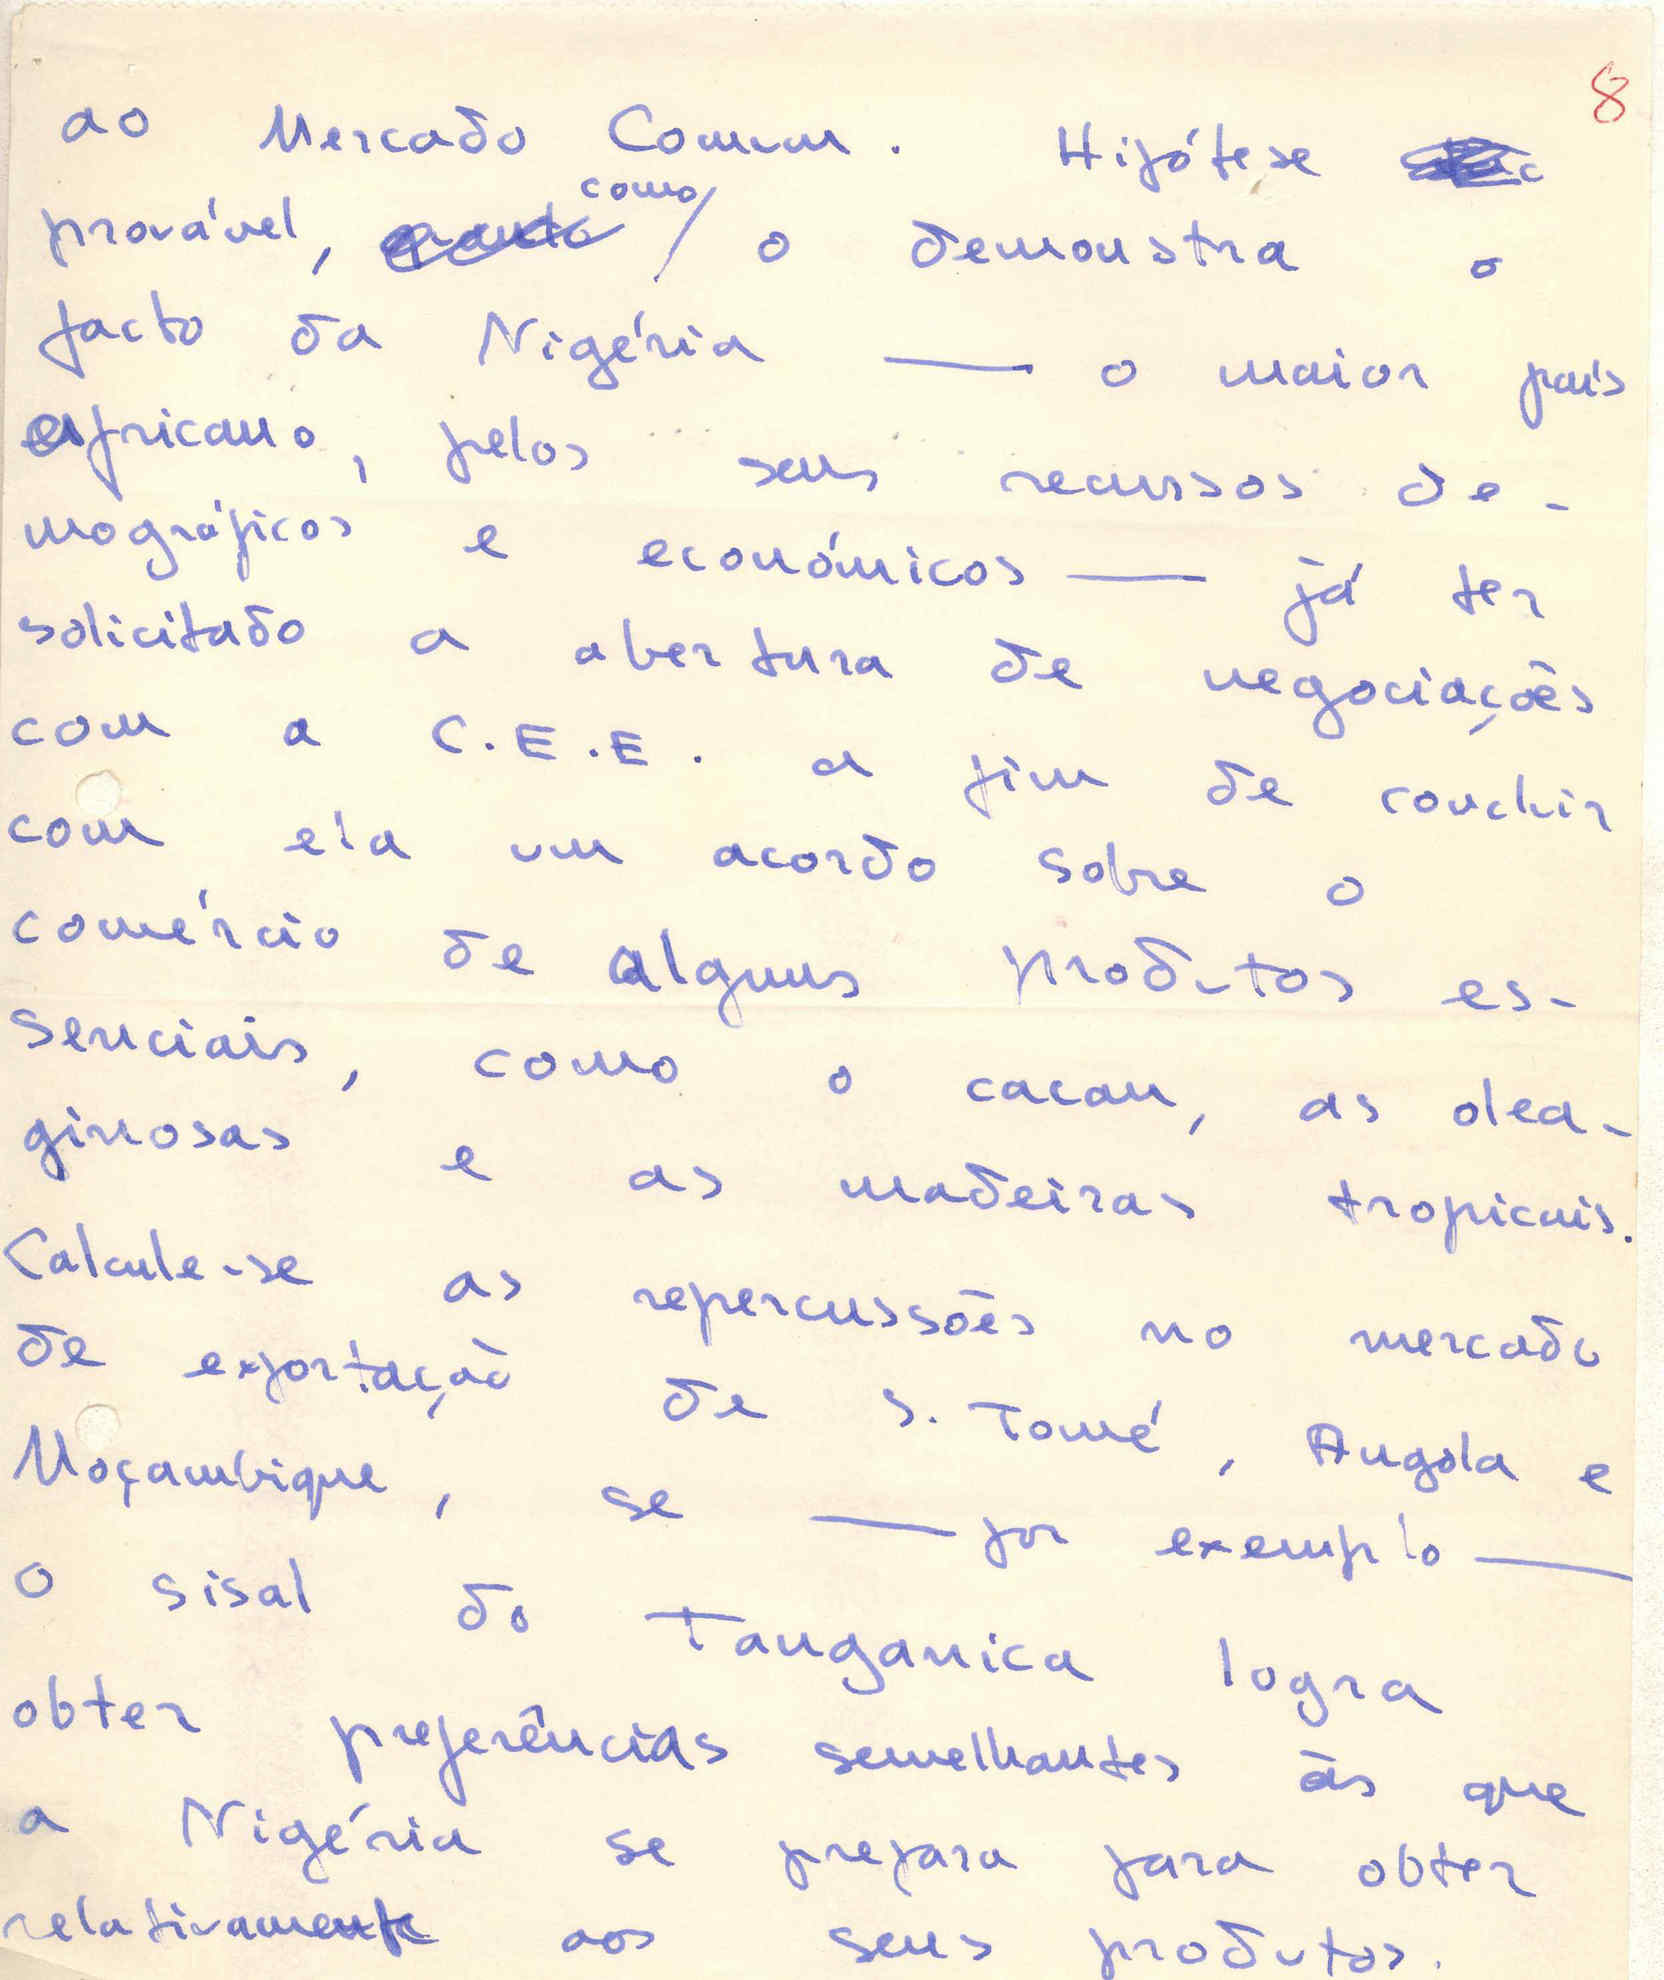 8
ao Mercado Comum. Hipótese
provável, como o demonstra o
facto da Nigéria — o maior país
africano, pelos seus recursos de-
mográficos e económicos — já ter
solicitado a abertura de negociações
com a C.E.E. a fim de concluir
com ela um acordo sobre o
comércio de alguns produtos es-
senciais, como o cacau, as olea-
ginosas e as madeiras tropicais.
Calcule-se as repercussões no mercado
de exportação de S. Tomé, Angola e
Moçambique, se — por exemplo —
o sisal do Tanganica logra
obter preferências semelhantes às que
a Nigéria se prepara para obter
relativamente aos seus produtos.